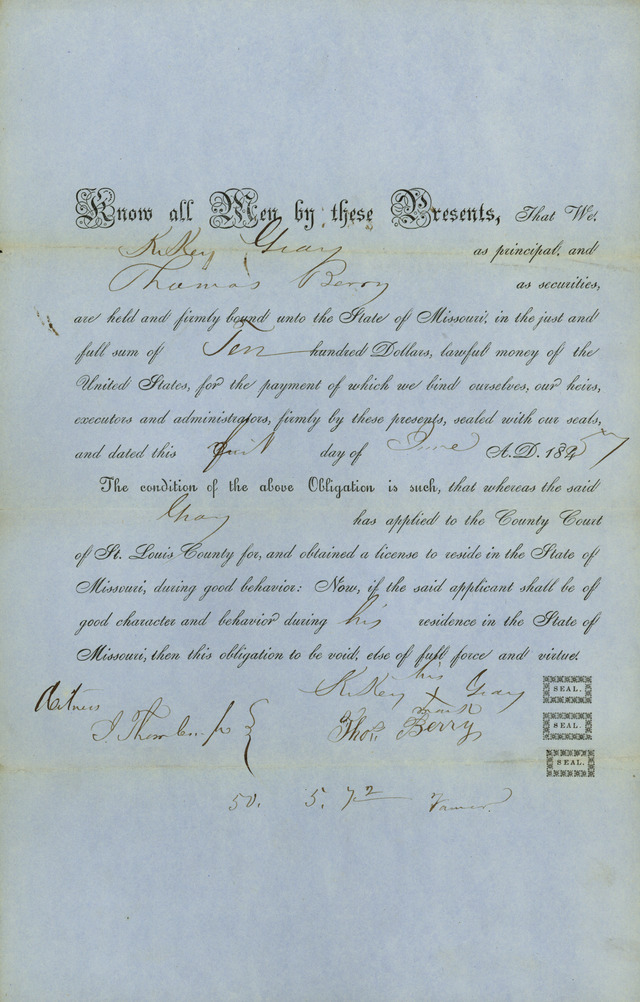 Know all Men by these Presents, That We.
KcKey Gray as principal, and
Thomas Berry as securities,
are held and firmly bound unto the State of Missouri, in the just and
full sum of Ten hundred Dollars, lawful money of the
United States, for the payment of which we bind ourselves, our heirs,
executors and administrators, firmly by these presents, sealed with our seals,
and dated this day of June A.D. 1857
The condition of the above Obligation is such, that whereas the said
Gray has applied to the County Court
of St. Louis County for, and obtained a license to reside in the State of
Missouri, during good behavior: Now, if the said applicant shall be of
good character and behavior during his residence in the State of
Missouri, then this obligation to be void, else of full force and virtue.
his
KcKey X Gray SEAL.
mark
Witness
Thos. Berry SEAL.
SEAL.
50. 5. 7 2